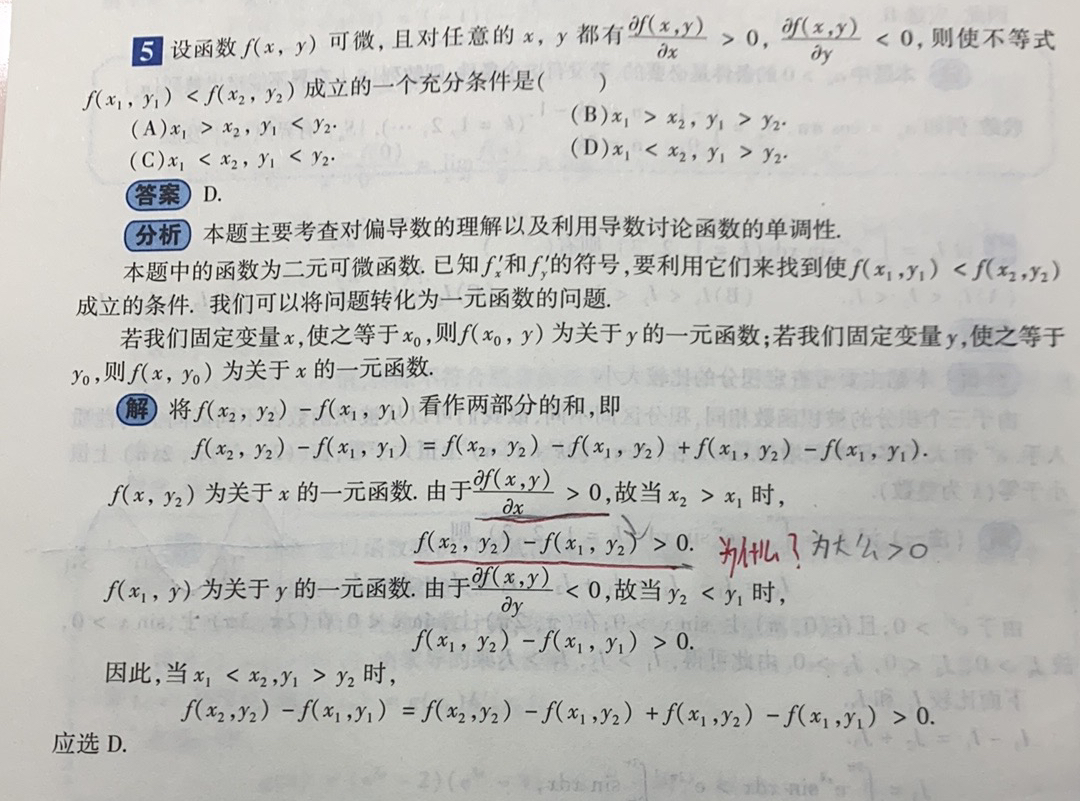 5 设函数 f(x, y) 可微, 且对任意的 x, y 都有 ∂f(x,y)/∂x > 0, ∂f(x,y)/∂y < 0, 则使不等式
f(x₁, y₁) < f(x₂, y₂) 成立的一个充分条件是(    )
(A) x₁ > x₂, y₁ < y₂. (B) x₁ > x₂, y₁ > y₂.
(C) x₁ < x₂, y₁ < y₂. (D) x₁ < x₂, y₁ > y₂.
答案 D.
分析 本题主要考查对偏导数的理解以及利用导数讨论函数的单调性.
本题中的函数为二元可微函数. 已知 f′ₓ和 f′ᵧ的符号,要利用它们来找到使 f(x₁,y₁) < f(x₂,y₂)
成立的条件. 我们可以将问题转化为一元函数的问题.
若我们固定变量 x,使之等于 x₀,则 f(x₀, y) 为关于 y 的一元函数;若我们固定变量 y,使之等于
y₀,则 f(x, y₀) 为关于 x 的一元函数.
解 将 f(x₂, y₂) - f(x₁, y₁) 看作两部分的和,即
f(x₂, y₂) - f(x₁, y₁) = f(x₂, y₂) - f(x₁, y₂) + f(x₁, y₂) - f(x₁, y₁).
f(x, y₂) 为关于 x 的一元函数. 由于 ∂f(x,y)/∂x > 0,故当 x₂ > x₁ 时,
f(x₂, y₂) - f(x₁, y₂) > 0. 为什么? 为大么>0
f(x₁, y) 为关于 y 的一元函数. 由于 ∂f(x,y)/∂y < 0,故当 y₂ < y₁ 时,
f(x₁, y₂) - f(x₁, y₁) > 0.
因此,当 x₁ < x₂,y₁ > y₂ 时,
f(x₂,y₂) - f(x₁,y₁) = f(x₂,y₂) - f(x₁,y₂) + f(x₁,y₂) - f(x₁,y₁) > 0.
应选 D.